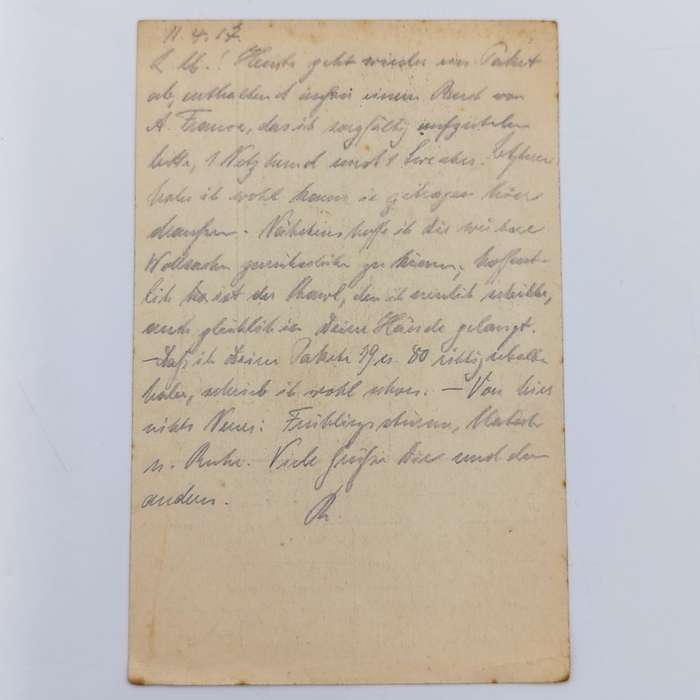 11. 4. 17.
L. M.! Heute geht wieder ein Paket
ab, enthaltend außer einem Band von
A. France, das ich sorgfältig aufzuheben
bitte, 1 Netzhemd und 1 Sweater. Letzteren
habe ich wohl kaum je getragen hier
draußen. Nächstens hoffe ich Dir weitere
Wollsachen zurückschicken zu können, hoffent-
lich ist der Shawl, den ich neulich schickte,
auch glücklich in Deine Hände gelangt.
– Daß ich Deine Pakete 79 u. 80 richtig erhalten
habe, schrieb ich wohl schon. – Von hier
nichts Neues: Frühlingssturm, Matsch
u. Ruhe. Viele Grüße Dir und den
andern.
R.